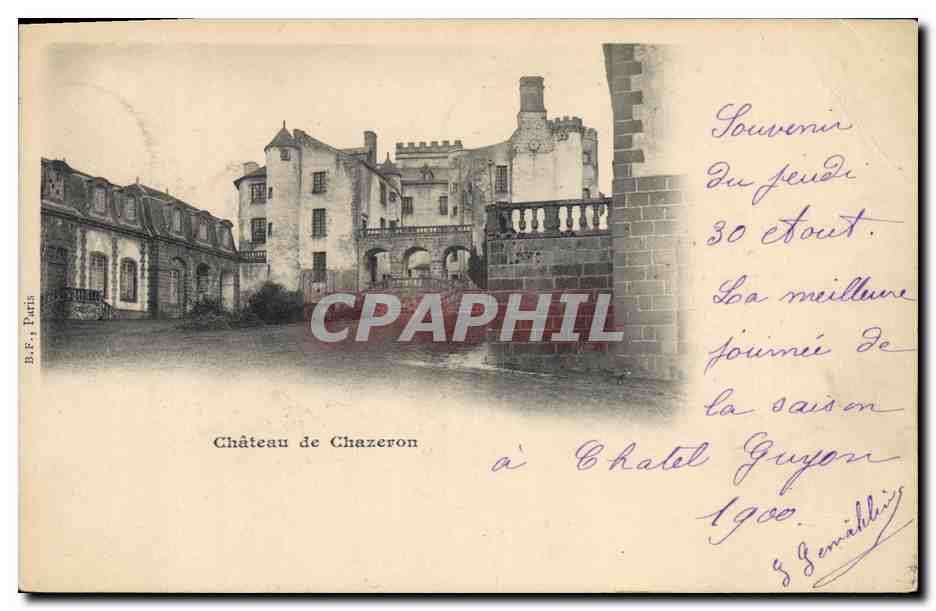 B.F., Paris
CPAPHIL
Château de Chazeron
Souvenir
du jeudi
30 Août.
La meilleure
journée de
la saison
à Chatel Guyon
1900.